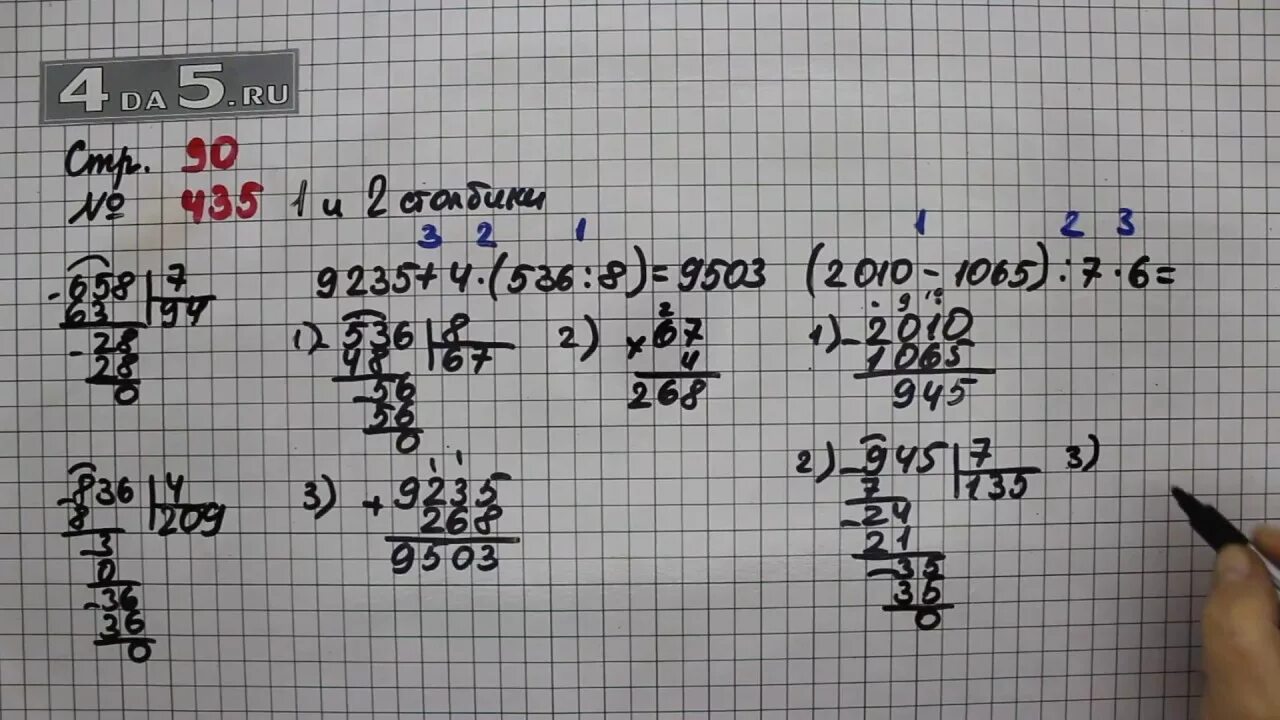 4 DA 5.RU
Стр. 90
№ 435 1 и 2 столбики
658 7
63 94
28
28
0
836 4
8 209
3
0
36
36
0
3 2 1
9235+4·(536:8)=9503
1) 536 8
48 67
56
56
0
2) 2
× 67
4
268
3) 1 1
+ 9235
268
9503
1 2 3
(2010-1065):7·6=
. 9 10
1) - 2010
1065
945
2) - 945 7
7 135
- 24
21
- 35
35
0
3)